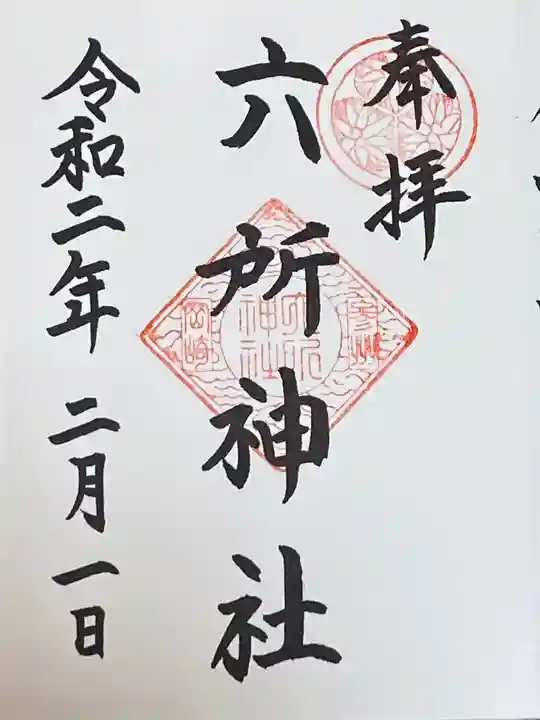 奉拝
六所神社
令和二年 二月一日
参州
六所神社
岡崎